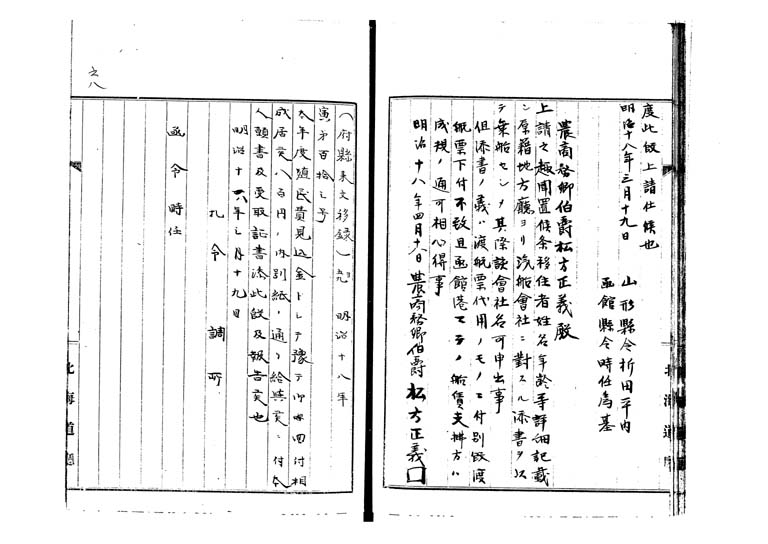 度此段上請仕候也
明治十八年三月十九日
山形縣令折田平内
函館縣令時任為基
農商務卿伯爵松方正義殿
上請之趣聞置候条移住者姓名年齢等詳細記載
シ原籍地方廳ヨリ汽船會社ニ對スル添書ヲ以
テ乗船セシメ其際該會社名可申出事
但添書ノ義ハ渡航票代用ノモノニ付別段渡
航票下付不致且函館港マテノ船賃支拂方ハ
成規ノ通可相心得事
明治十八年四月十八日農商務卿伯爵松方正義□
(府縣来文移録)明治十八年
寅第百拾之号
本年度殖民費見込金トシテ豫テ御回付相
成居候八百円ノ内別紙ノ通リ給與候ニ付本
人願書及受取証書添此段及報告候也
明治十八年三月十九日
九令調所
函令時任
北海道廳
北海道廳